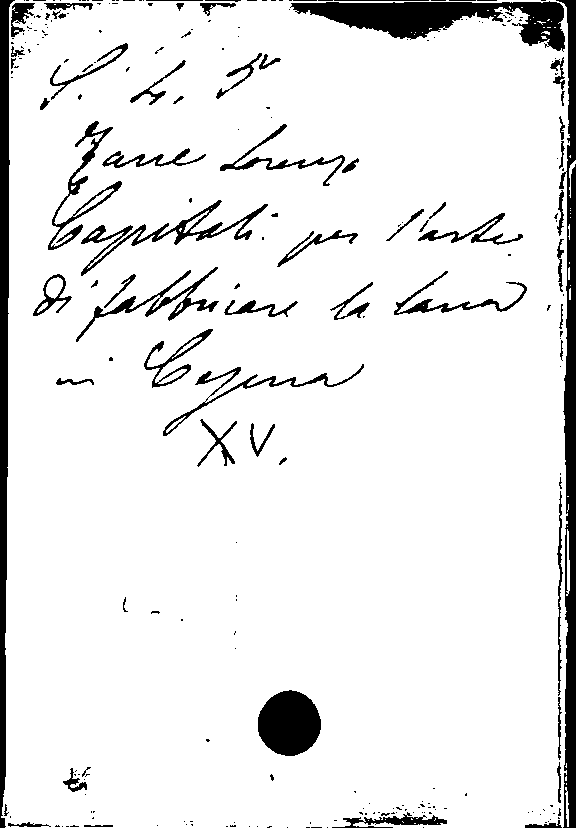 S. L. 5
Zane Lorenzo
Capitoli per l'arte
di fabbricare la lana
in Cesena
XV.